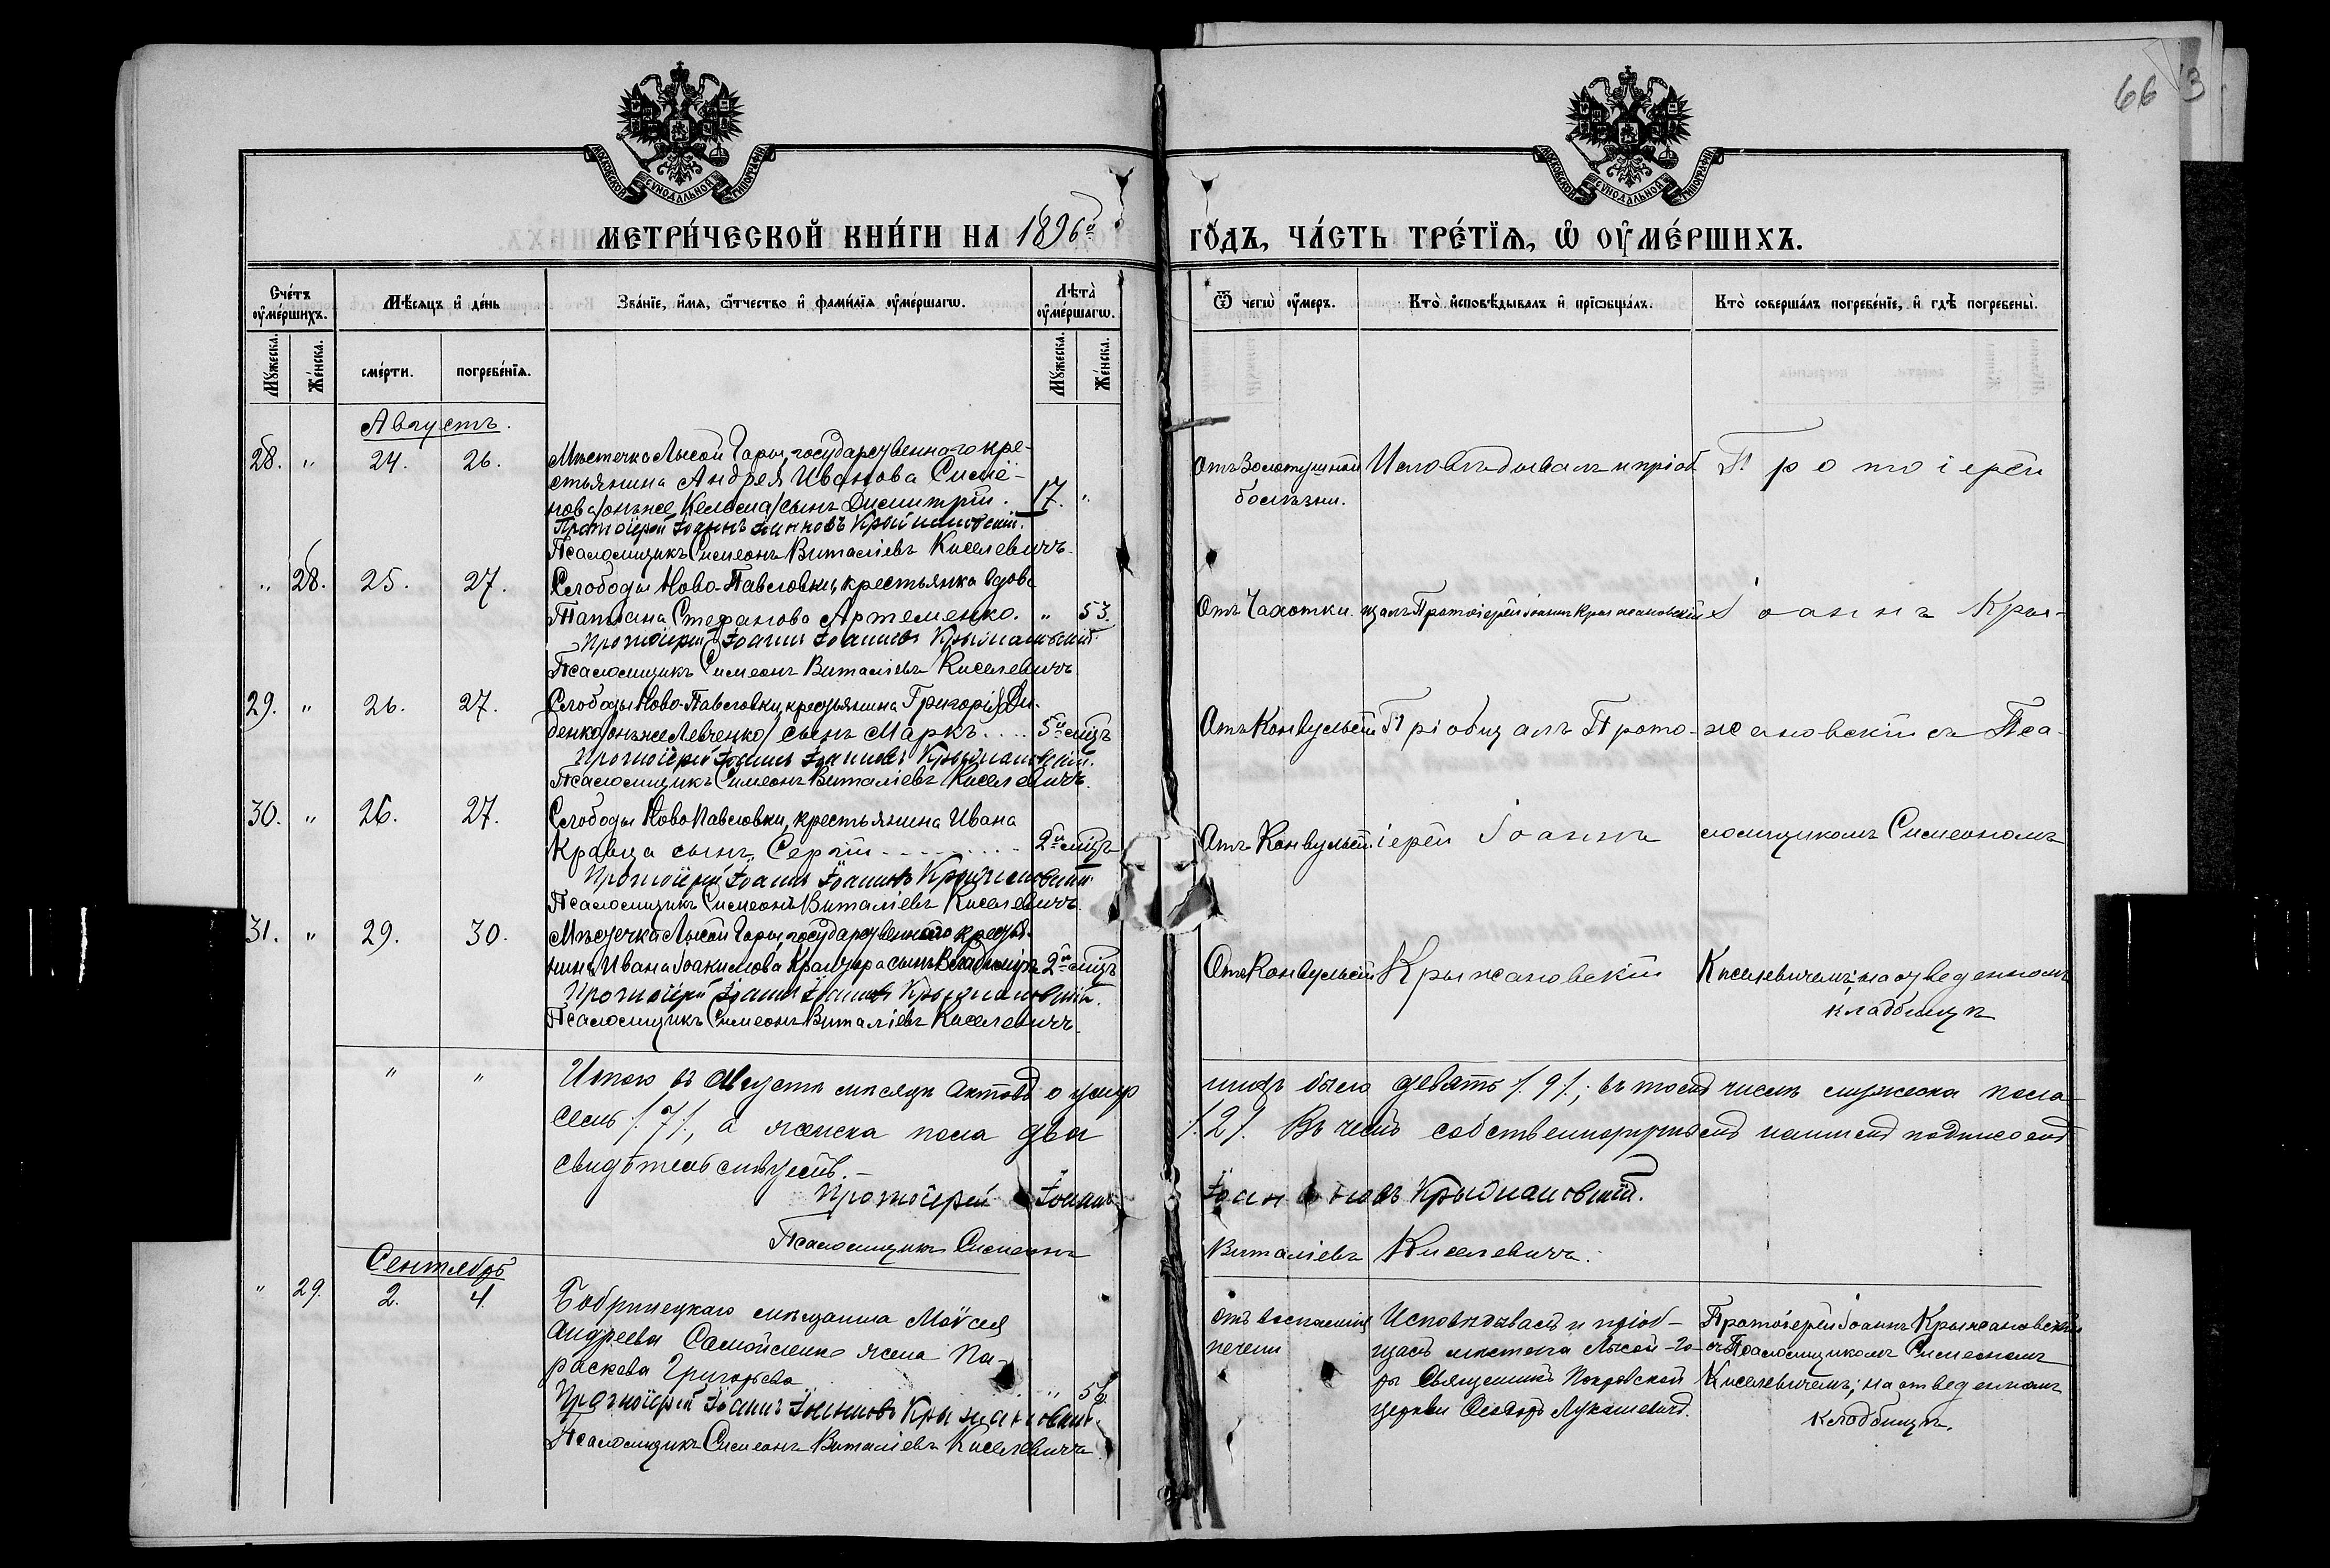 66
МОСКОВСКОЙ СѴНОДАЛЬНОЙ ТИПОГРАФІИ
МОСКОВСКОЙ СѴНОДАЛЬНОЙ ТИПОГРАФІИ
МЕТРИ́ЧЕСКОЙ КНИ́ГИ НА 1896й ГО́ДЪ, ЧА́СТЬ ТРЕ́ТЇѦ, Ѡ҆ ОУ҆МЕ́РШИХЪ.
Сче́тъ оу҆ме́ршихъ.
Мѣ́сѧцъ и҆ де́нь
Зва́нїе, и҆́мѧ, ѻ҆́тчество и҆ фами́лїѧ оу҆ме́ршагѡ.
Лѣта̀ оу҆ме́ршагѡ.
Ѿ чегѡ̀ оу҆́меръ.
Кто̀ и҆сповѣ́дывалъ и҆ прїѡбща́лъ.
Кто̀ соверша́лъ погребе́нїе, и҆ гдѣ̀ погребены̀.
Мꙋ́жеска.
Же́нска.
сме́рти.
погребе́нїѧ.
Мꙋ́жеска.
Же́нска.
Августъ.
28. " 24. 26. Мѣстечка Лысой Горы, государственнаго кре-
стьянина Андрея Иванова Симе-
нова/онъже сынъ Димитрій. 17. "
Протоіерей Іоаннъ Іоанновъ Крыжановскій.
Псаломщикъ Симеонъ Виталіевъ Киселевичъ.
Отъ Золотушной
болѣзни.
Исповѣдывалъ и пріоб
Протоіерей
" 28. 25. 27. Слободы Ново-Павловки, крестьянка вдова
Татіана Стефанова Артеменко. " 53.
Протоіерей Іоаннъ Іоанновъ Крыжановскій.
Псаломщикъ Симеонъ Виталіевъ Киселевичъ
Отъ Чахотки.
щалъ Протоіерей Іоаннъ Крыжановскій
Іоаннъ Кры-
29. " 26. 27. Слободы Ново-Павловки, крестьянина Григорія Ди-
денка/онъже Левченко/ сынъ Маркъ.... 5и мѣц
Протоіерей Іоаннъ Іоанновъ Крыжановскій.
Псаломщикъ Симеонъ Виталіевъ Киселевичъ.
Отъ Конвульсій
Пріобщалъ Прото-
жановскій съ Пса-
30. " 26. 27. Слободы Ново Павловки, крестьянина Ивана
Кравца сынъ Сергій......... 2и мѣц
Протоіерей Іоаннъ Іоанновъ Крыжановскій.
Псаломщикъ Симеонъ Виталіевъ Киселевичъ.
Отъ Конвульсій
іерей Іоаннъ
ломщикомъ Симеономъ
31. " 29. 30. Мѣстечка Лысой Горы, государственнаго крестья-
нина Ивана Іоакимова сынъ Владиміръ 2и мѣц
Протоіерей Іоаннъ Іоанновъ Крыжановскій.
Псаломщикъ Симеонъ Виталіевъ Киселевичъ.
Отъ Конвульсій
Крыжановскій
Киселевичемъ; на отведенномъ
кладбищѣ
" " Итого въ Августѣ мѣсяцѣ актовъ о умер
шихъ было девять /.9/.; въ томъ числѣ мужеска пола
семь /.7/., а женска пола два
/.2/. Въ чемъ собственноручнымъ нашимъ подписомъ
свидѣтельствуемъ.–
Протоіерей Іоаннъ
Іоанновъ Крыжановскій.
Псаломщикъ Симеонъ
Виталіевъ Киселевичъ.
Сентябрь
" 29. 2. 4. Бобринецкаго мѣщанина Моѵсея
Андреева Самойленко жена Па-
раскева Григорьева
" 56
Протоіерей Іоаннъ Іоанновъ Крыжановскій.
Псаломщикъ Симеонъ Виталіевъ Киселевичъ.
Отъ воспаленія
печени
Исповѣдывалъ и пріоб-
щалъ мѣстечка Лысой-Го-
ры Священникъ Покровской
церкви Лукашевичъ.
Протоіерей Іоаннъ Крыжановскій
съ Псаломщикомъ Симеономъ
Киселевичемъ; на отведенномъ
кладбищѣ.